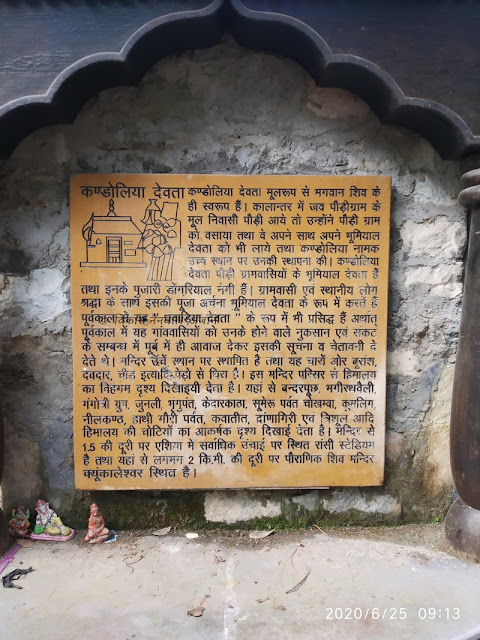 कण्डोलिया देवता
कण्डोलिया देवता मूलरूप से भगवान शिव के
ही स्वरूप हैं। कालान्तर में जब पौड़ीग्राम के
मूल निवासी पौड़ी आये तो उन्होंने पौड़ी ग्राम
को वसाया तथा वे अपने साथ अपने भूमियाल
देवता को भी लाये तथा कण्डोलिया नामक
उच्च स्थान पर उनकी स्थापना की। कण्डोलिया
देवता पौड़ी ग्रामवासियों के भूमियाल देवता हैं
तथा इनके पुजारी डोंगरियाल नेगी हैं। ग्रामवासी एवं स्थानीय लोग
श्रद्धा के साथ इसकी पूजा अर्चना भूमियाल देवता के रूप में करते हैं
पूर्वकाल में यह " धवाड़िया देवता " के रूप में भी प्रसिद्ध हैं अर्थात्
पूर्वकाल में यह गांववासियों को उनके होने वाले नुकसान एवं संकट
के सम्बन्ध में पूर्व में ही आवाज देकर इसकी सूचना व चेतावनी दे
देते थे। मन्दिर ऊँचे स्थान पर स्थापित है तथा यह चारों ओर बुरांश,
देवदार, चीड़ इत्यादि पेड़ो से घिरा है। इस मन्दिर परिसर से हिमालय
का विहंगम दृश्य दिखाइयी देता है। यहां से बन्दरपूंछ, भगीरथवैली,
गंगोत्री ग्रुप, जुनली, भृगुपंत, केदारकांठा, सूमेरू पर्वत चोखम्वा, कुमलिंग,
नीलकण्ठ, हाथी गौरी पर्वत, कवातीत, द्रोणागिरी एवं त्रिशूल आदि
हिमालय की चोटियों का आकर्षक दृश्य दिखाई देता है। मन्दिर से
1.5 की दूरी पर एशिया में सर्वाधिक ऊंचाई पर स्थित रांसी स्टेडियम
है तथा यहां से लगभग 2 कि.मी. की दूरी पर पौराणिक शिव मन्दिर
क्यूंकालेश्वर स्थित है।
2020/6/25 09:13